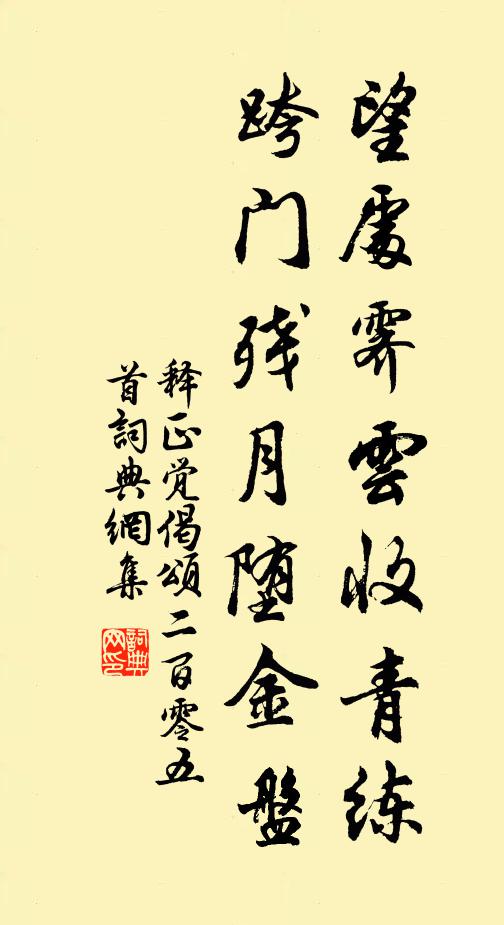 望處霽雲收青练
跨门残月堕金盤
释正觉偈頌二百零五
首詞典網集
詞典网印